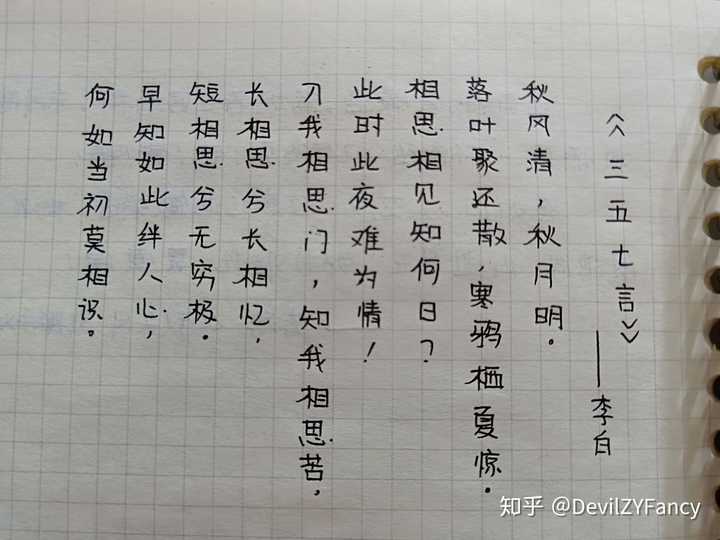 《三五七言》
——李白
秋风清，秋月明。
落叶聚还散，寒鸦栖夏惊。
相思相见知何日？
此时此夜难为情！
入我相思门，知我相思苦，
长相思兮长相忆，
短相思兮无穷极。
早知如此绊人心，
何如当初莫相识。
知乎 @DevilZYFancy